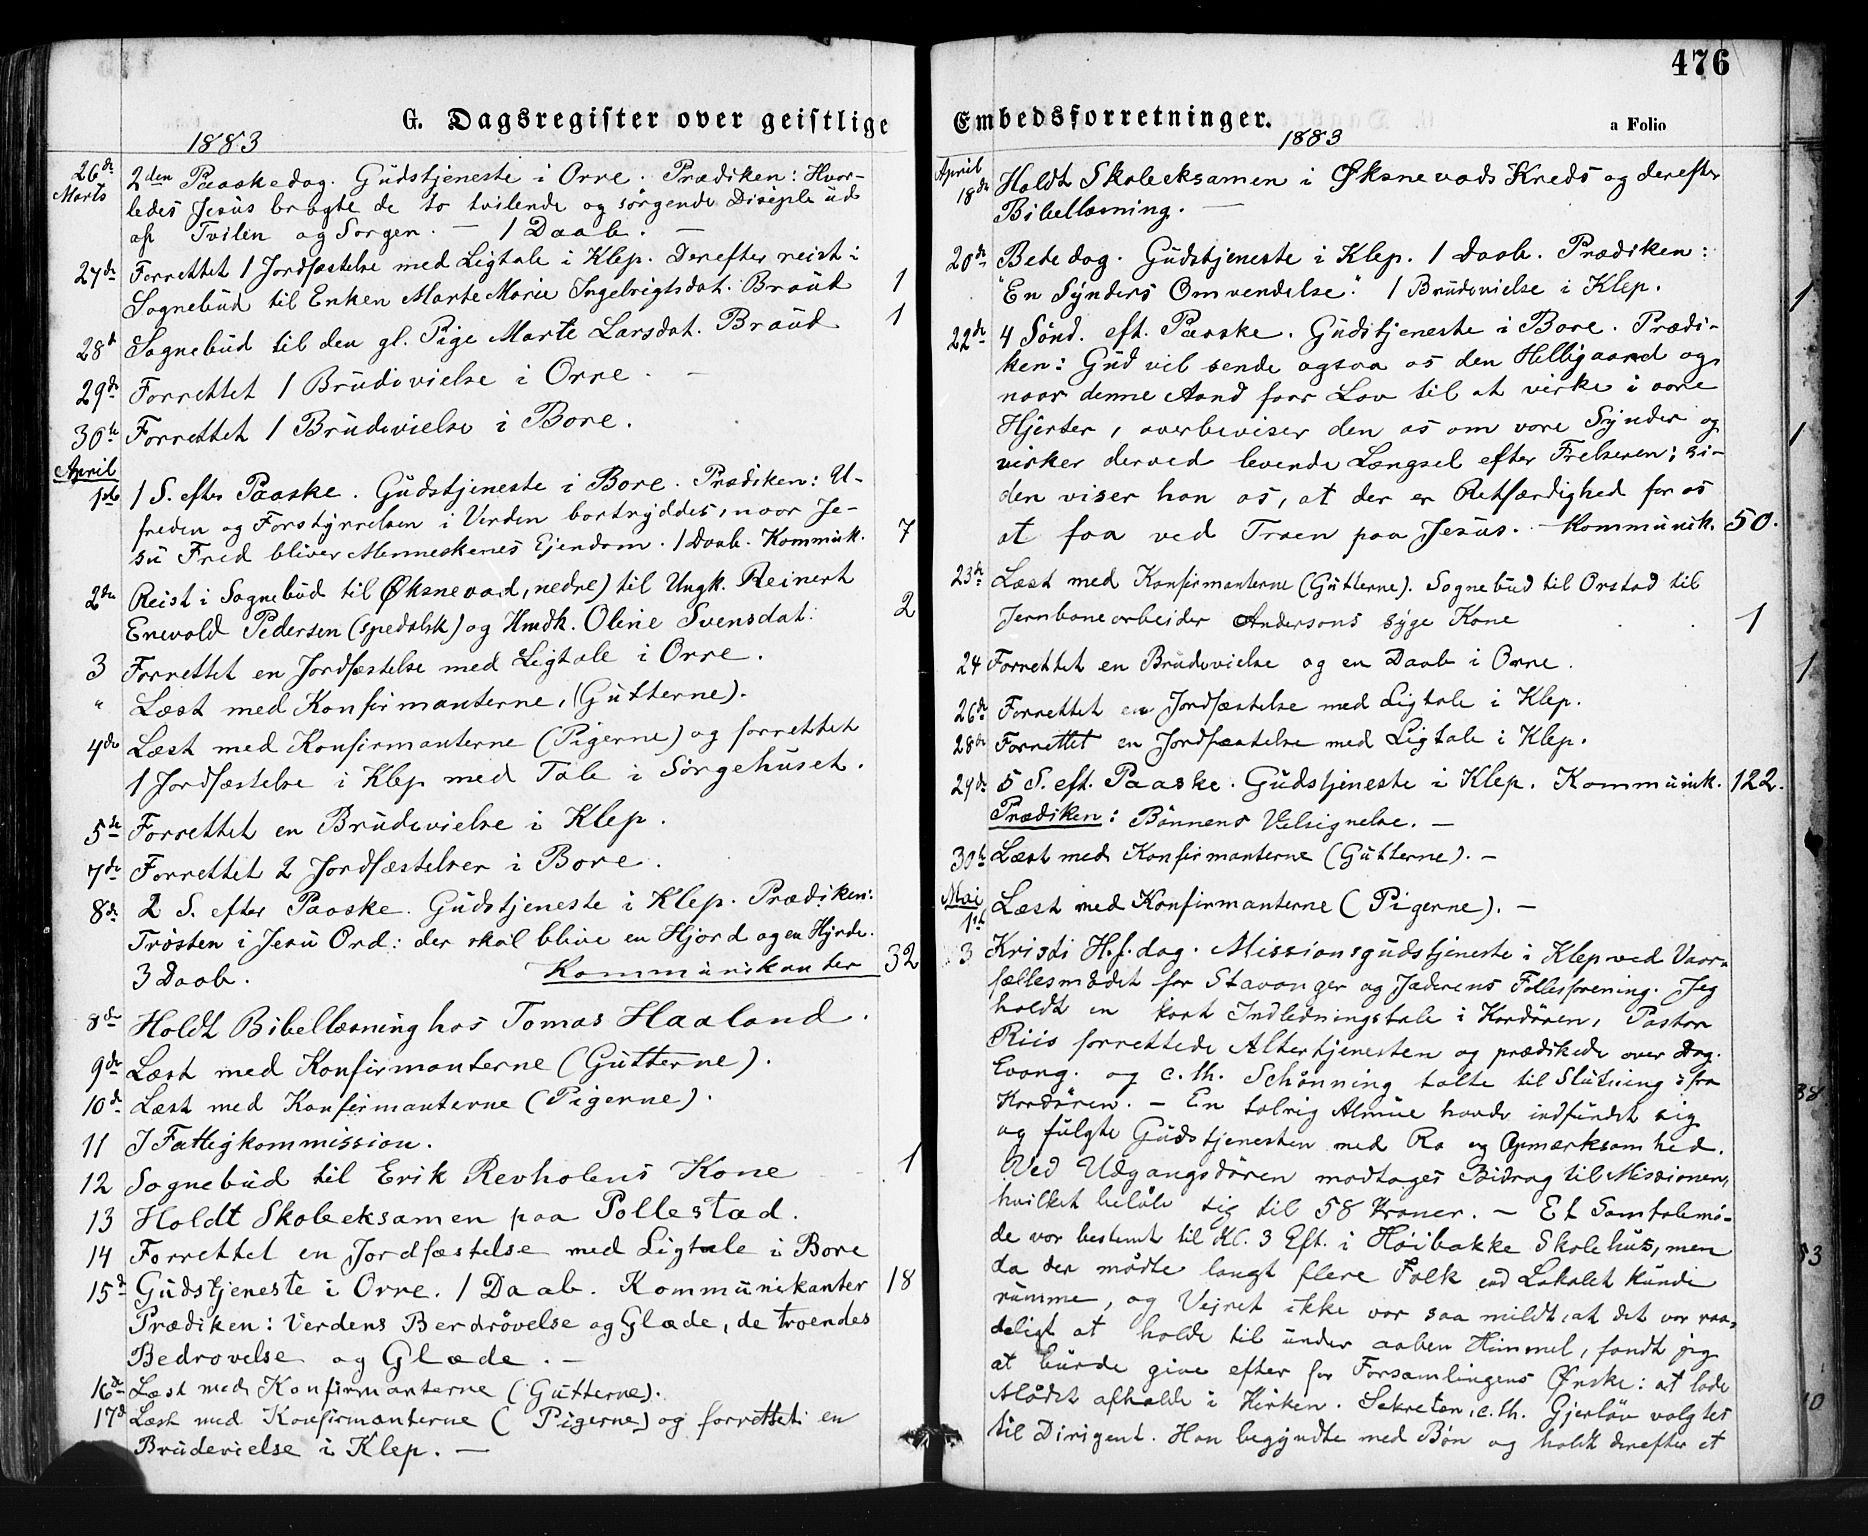 G. Dagsregister over geistlige
1883
26de Marts 2den Paaskedag. Gudstjeneste i Orre. Prædiken: Hvor-
ledes Jesus bragte de to tvilende og sørgende Disciple ud
af Tvilen og Sorgen. — 1 Daab. —
27de Forrettet 1 Jordfæstelse med Ligtale i Klep. Derefter reist i
Sognebud til Enken Marte Marie Ingelrigtsdat. Braud 1
28d Sognebud til den gl. Pige Marte Larsdat. Braud 1
29de Forrettet 1 Brudevielse i Orre. —
30te Forrettet 1 Brudevielse i Bore.
April
1ste 1 S. efter Paaske. Gudstjeneste i Bore. Prædiken: U-
freden og Forstyrrelsen i Verden bortryddes, naar Je-
su Fred bliver Menneskenes Ejendom. 1 Daab. Kommunik. 7
2de Reist i Sognebud til Øksnevad, nedre) til Ungk. Reinert
Enevald Pedersen (spedalsk) og Hmdk. Oline Svensdat. 2
3 Forrettet en Jordfæstelse med Ligtale i Orre.
" Læst med Konfirmanterne, (Gutterne).
4de Læst med Konfirmanterne (Pigerne) og forrettet
1 Jordfæstelse i Klep med Tale i Sørgehuset.
5te Forrettet en Brudevielse i Klep.
7de Forrettet 2 Jordfæstelser i Bore.
8de 2 S. efter Paaske. Gudstjeneste i Klep. Prædiken:
Trøsten i Jesu Ord: der skal blive en Hjord og en Hyrde.
3 Daab. Kommunikanter 32
8de Holdt Bibellæsning hos Tomas Haaland.
9de Læst med Konfirmanterne (Gutterne).
10de Læst med Konfirmanterne (Pigerne).
11 I Fattigkommission.
12 Sognebud til Erik Revholens Kone 1
13 Holdt Skoleeksamen paa Pollestad.
14 Forrettet en Jordfæstelse med Ligtale i Bore
15d Gudstjeneste i Orre. 1 Daab. Kommunikanter 18
Prædiken: Verdens Berdrøvelse og Glæde, de troendes
Bedrovelse og Glæde. —
16de Læst med Konfirmanterne (Gutterne).
17d Læst med Konfirmanterne (Pigerne) og forrettet en
Brudevielse i Klep. —
476
Embedsforretninger.
a Folio
1883
April
18de Holdt Skoleeksamen i Øksnevads Kreds og derefter
Bibellæsning. —
20de Bededag. Gudstjeneste i Klep. 1 Daab. Prædiken:
"En Synders Omvendelse". 1 Brudevielse i Klep.
22de 4 Sønd. eft. Paaske. Gudstjeneste i Bore. Prædi-
ken: Gud vil sende ogsaa os den Helligaand og
naar denne Aand faar Lov til at virke i vore
Hjerter, overbeviser den os om vore Synder og
virker derved levende Længsel efter Frelseren; si-
den viser han os, at der er Retfærdighed for os
at faa ved Troen paa Jesus. — Kommunik. 50.
23de Læst med Konfirmanterne (Gutterne). Sognebud til Orstad til
Jernbanearbeider Andersons syge Kone 1
24 Forrettet en Brudevielse og en Daab i Orre.
26de Forrettet en Jordfæstelse med Ligtale i Klep.
28de Forrettet en Jordfæstelse med Ligtale i Klep.
29de 5 S. eft. Paaske. Gudstjeneste i Klep. Kommunik. 122.
Prædiken: Bønnens Velsignelse. —
30te Læst med Konfirmanterne (Gutterne). —
Mai
1ste Læst med Konfirmanterne (Pigerne). —
3 Kristi H.f.dag. Missionsgudstjeneste i Klep ved Vaar-
fællesmødet for Stavanger og Jæderens Fællesforening. Jeg
holdt en kort Indledningstale i Kordøren, Pastor
Riis forrettede Altertjenesten og prædikede over Dag.
Evang. og c. th. Schønning talte til Slutning fra
Kordøren. — En talrig Almue havde indfundet sig
og fulgte Gudstjenesten med Ro og Opmærksomhed.
Ved Udgangsdøren modtages Bidrag til Missionen,
hvilket beløb sig til 58 Kroner. — Et Samtalemø-
de var bestemt til Kl. 3 Eft. i Høibakke Skolehus, men
da der mødte langt flere Folk end Lokalet kunde
rumme, og Vejret ikke var saa mildt, at det var raa-
deligt at holde til under aaben Himmel, fandt jeg
at burde give efter for Forsamlingens Ønske: at lade
Mødet afholde i Kirken. Sekretær, c. th. Gjerløv valgtes
til Dirigent. Han begyndte med Bøn og holdt derefter et
1
1
1
38
53
10